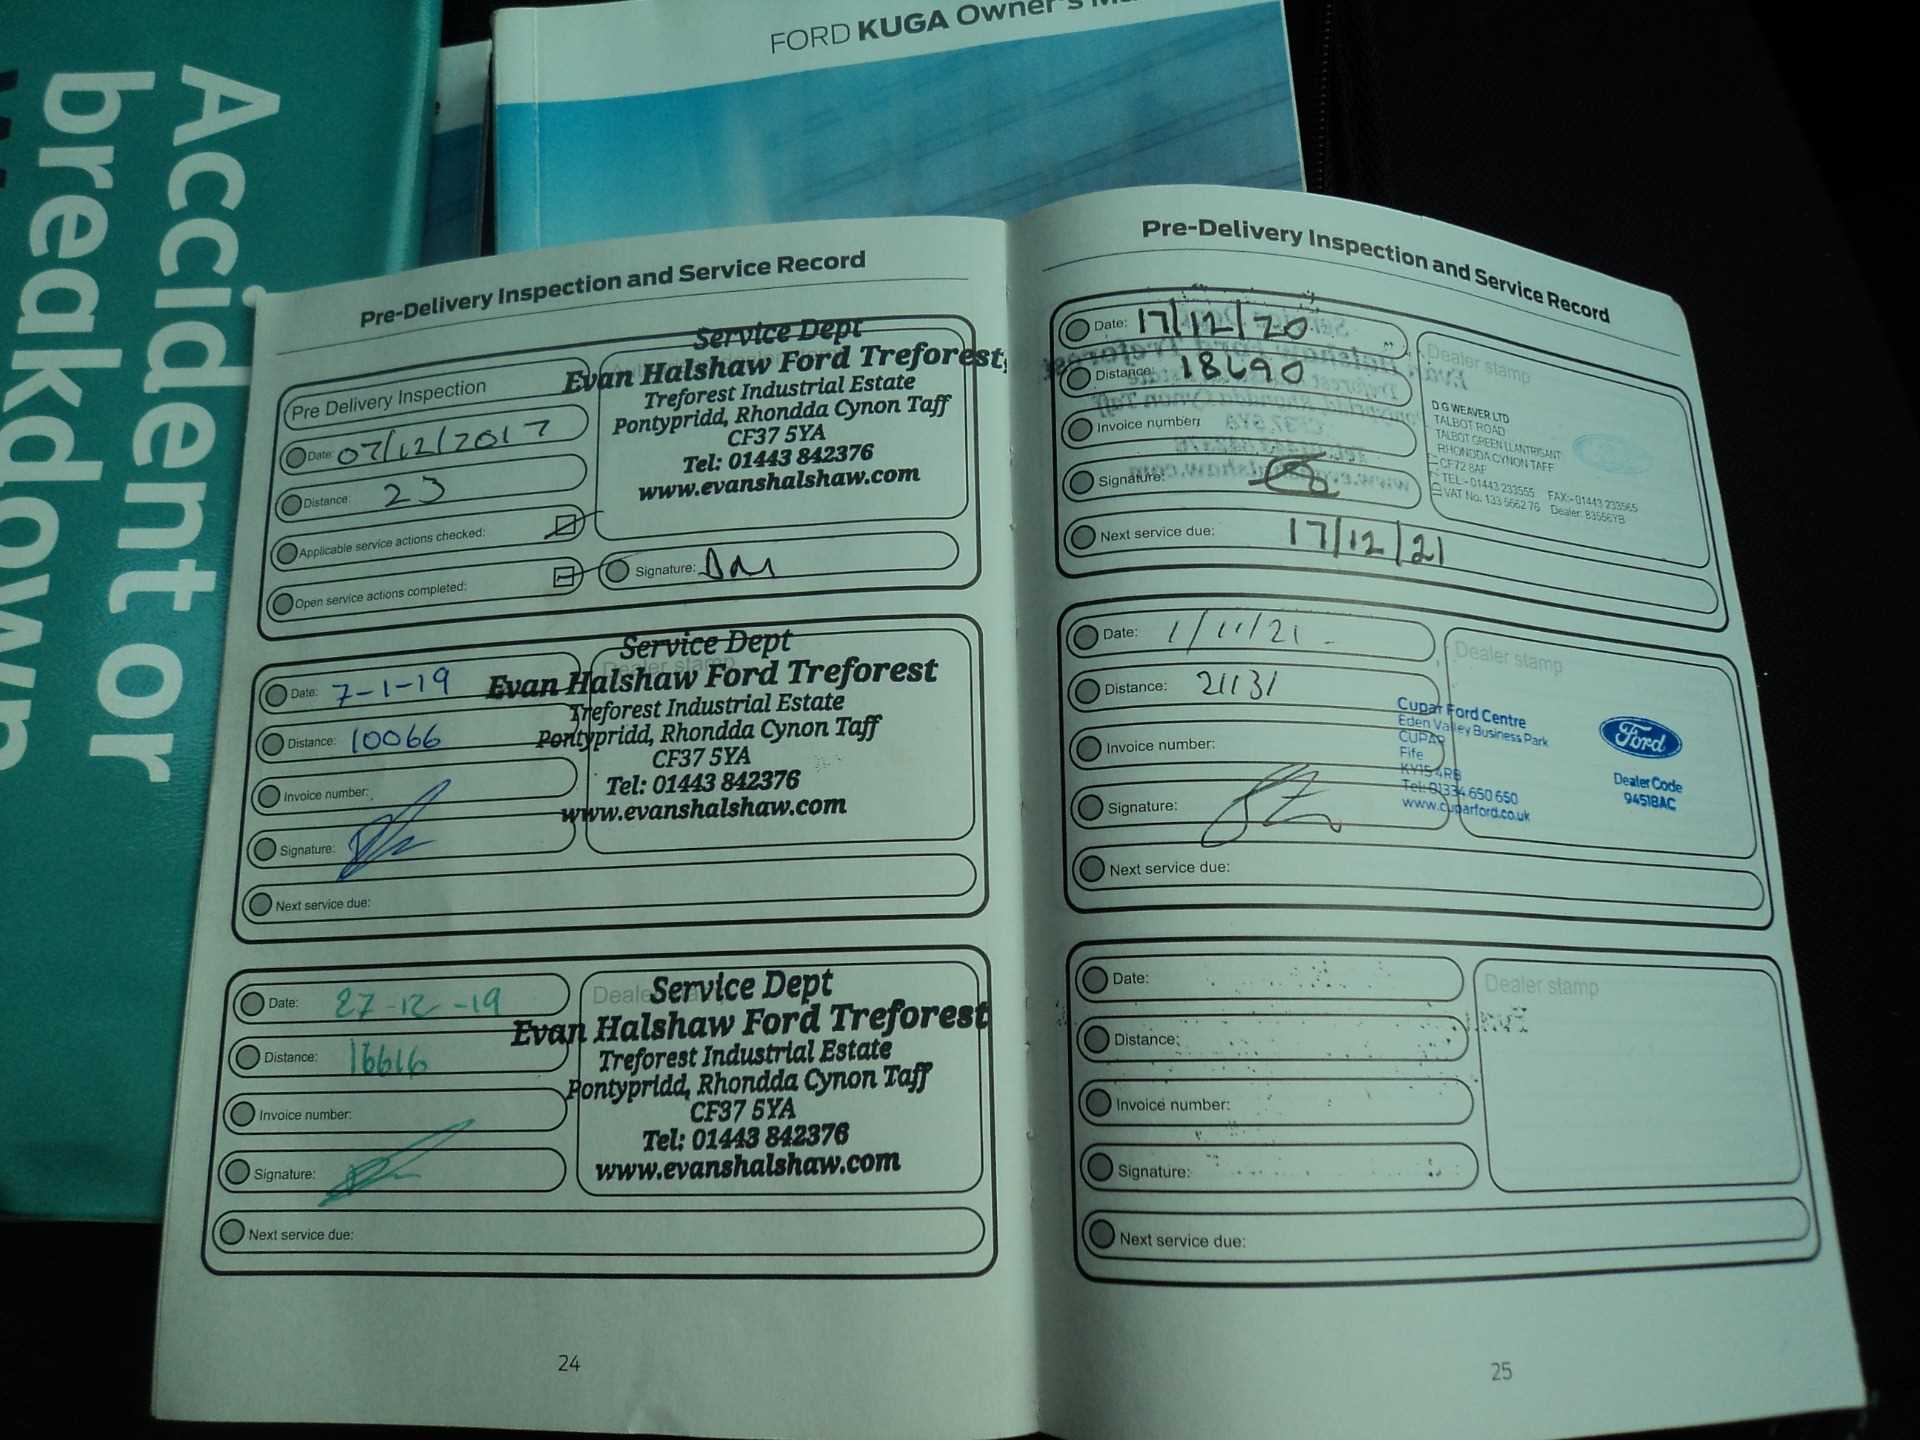 Accident or
breakdown
FORD KUGA Owner's
Pre-Delivery Inspection and Service Record
Pre Delivery Inspection
Date: 07/12/2017
Distance: 23
Applicable service actions checked:
Open service actions completed:
Service Dept
Evan Halshaw Ford Treforest,
Treforest Industrial Estate
Pontypridd, Rhondda Cynon Taff
CF37 5YA
Tel: 01443 842376
www.evanshalshaw.com
Signature:
Date: 7-1-19
Distance: 10066
Invoice number:
Signature:
Next service due:
Dealer stamp
Service Dept
Evan Halshaw Ford Treforest
Treforest Industrial Estate
Pontypridd, Rhondda Cynon Taff
CF37 5YA
Tel: 01443 842376
www.evanshalshaw.com
Date: 27-12-19
Distance: 16616
Invoice number:
Signature:
Next service due:
Service Dept
Evan Halshaw Ford Treforest
Treforest Industrial Estate
Pontypridd, Rhondda Cynon Taff
CF37 5YA
Tel: 01443 842376
www.evanshalshaw.com
24
Pre-Delivery Inspection and Service Record
Date: 17/12/20
Distance: 18690
Invoice number:
Signature:
Next service due: 17/12/21
Dealer stamp
D G WEAVER LTD
TALBOT ROAD
TALBOT GREEN LLANTRISANT
RHONDDA CYNON TAFF
CF72 8AF
TEL:- 01443 233555 FAX:- 01443 233565
VAT No. 133 5662 76 Dealer: 83556YB
Date: 1/11/21
Distance: 21131
Invoice number:
Signature:
Next service due:
Dealer stamp
Cupar Ford Centre
Eden Valley Business Park
CUPAR
Fife
KY15 4RB
Tel: 01334 650 650
www.cuparford.co.uk
Ford
Dealer Code
9451BAC
Date:
Distance:
Invoice number:
Signature:
Next service due:
Dealer stamp
25